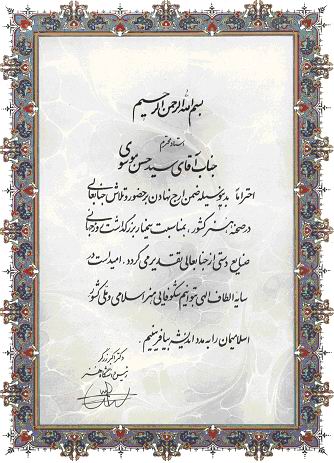 بسم الله الرحمن الرحیم
استاد محترم
جناب آقای سید حسن موسوی
احتراماً بدینوسیله ضمن ارج نهادن بر حضور و تلاش جنابعالی
در صحنه هنر کشور، بمناسبت بزرگداشت روز جهانی
صنایع دستی از جنابعالی تقدیر می گردد. امید است در
سایه الطاف الهی بتوانیم شکوفایی هنر اسلامی و ملی کشور
اسلامیمان را به مدد اندیشه بیافرینیم.
دکتر اکبر زرگر